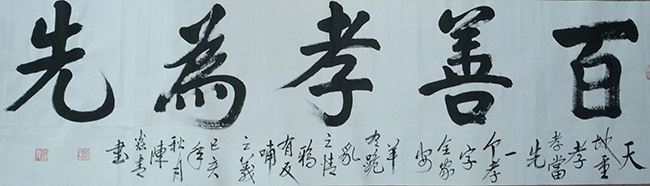 百善孝為先
天
地重
孝
孝當
先
一
个孝
字
全家
安
羊
有跪
乳
之情
鴉
有反
哺
之義
己亥
年
秋月
陳
青
書